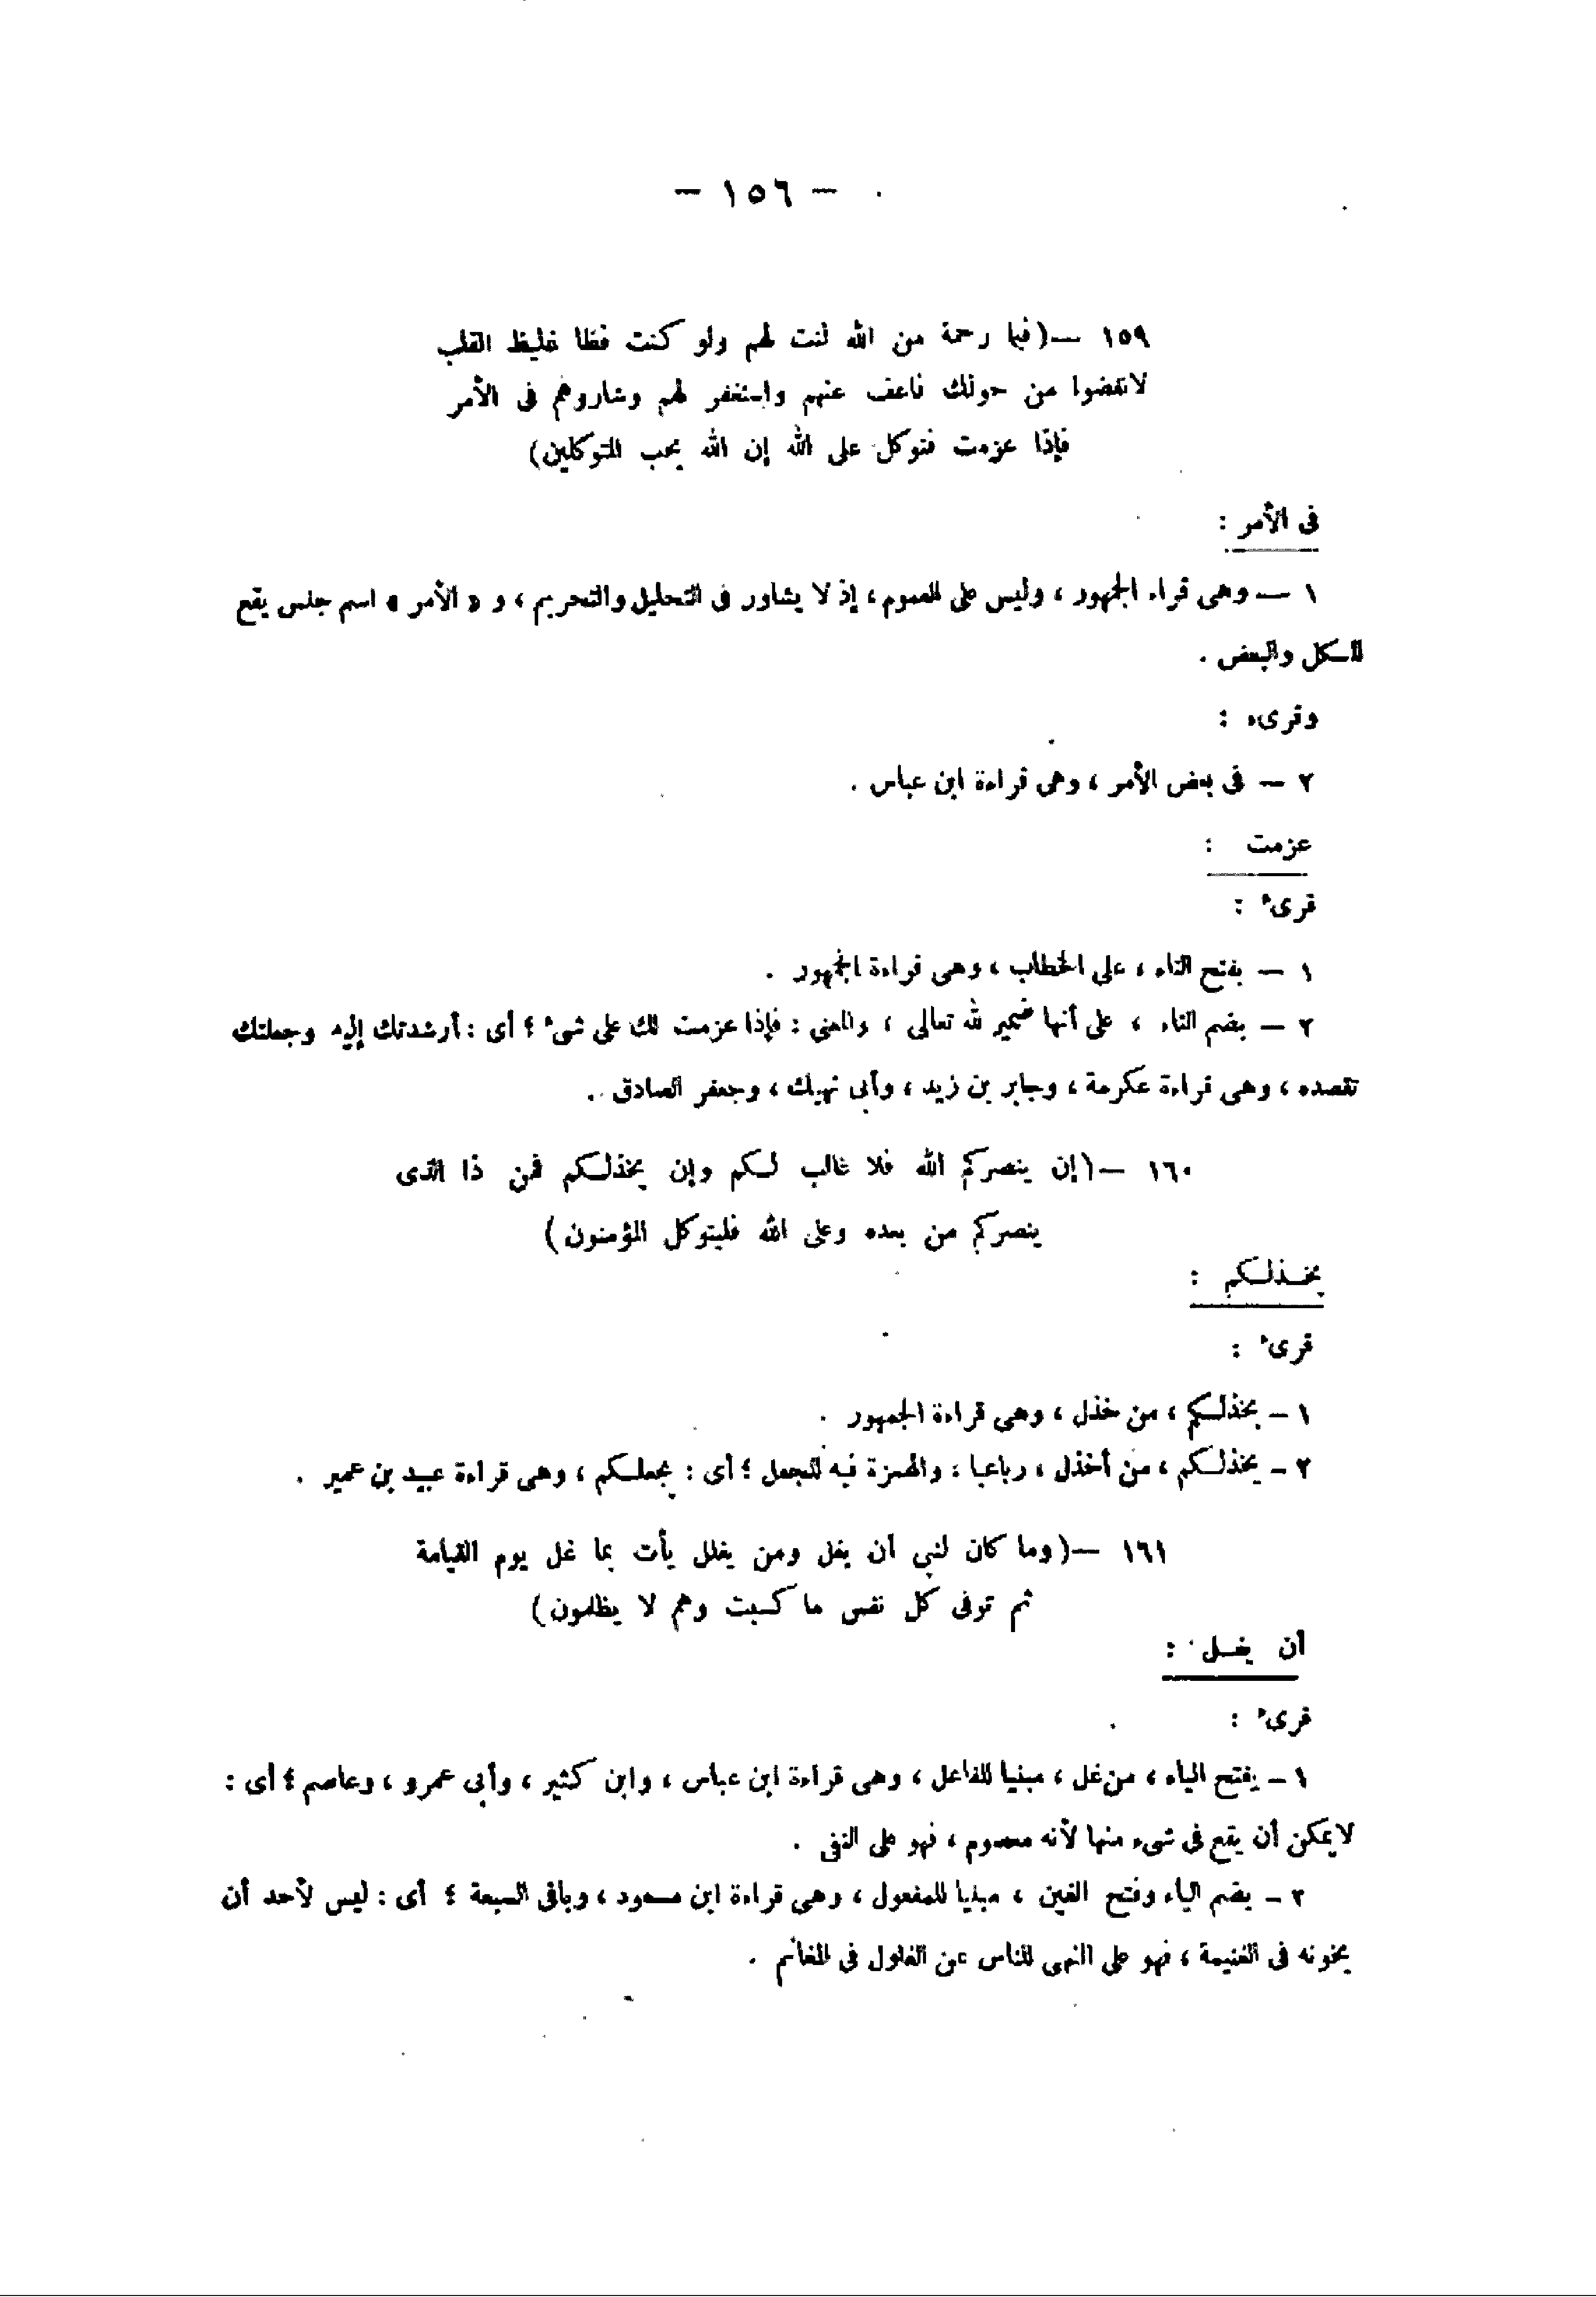 — ١٥٦ —
١٥٩ —(فبما رحمة من الله لنت لهم ولو كنت فظا غليظ القلب
لانفضوا من حولك فاعف عنهم واستغفر لهم وشاورهم فى الأمر
فإذا عزمت فتوكل على الله إن الله يحب المتوكلين)
فى الأمر :
١ — وهى قراء الجمهور ، وليس على العموم ، إذ لا يشاور فى التحليل والتحريم ، و « الأمر » اسم جنس يقع
للكل والبعض .
وقرىء :
٢ — فى بعض الأمر ، وهى قراءة ابن عباس .
عزمت :
قرىء :
١ — بفتح التاء ، على الخطاب ، وهى قراءة الجمهور .
٢ — بضم التاء ، على أنها ضمير لله تعالى ، والمعنى : فإذا عزمت لك على شىء ؛ أى : أرشدتك إليه وجعلتك
تقصده ، وهى قراءة عكرمة ، وجابر بن زيد ، وأبى نهيك ، وجعفر الصادق .
١٦٠ —(إن ينصركم الله فلا غالب لكم وإن يخذلكم فمن ذا الذى
ينصركم من بعده وعلى الله فليتوكل المؤمنون)
يخذلكم :
قرىء :
١ — يخذلكم ، من خذل ، وهى قراءة الجمهور .
٢ — يخذلكم ، من أخذل ، رباعيا ، والهمزة فيه للجعل ؛ أى : يجعلكم ، وهى قراءة عبيد بن عمير .
١٦١ —(وما كان لنبى أن يغل ومن يغلل يأت بما غل يوم القيامة
ثم توفى كل نفس ما كسبت وهم لا يظلمون)
أن يغل :
قرىء :
١ — يفتح الياء ، من غل ، مبنيا للفاعل ، وهى قراءة ابن عباس ، وابن كثير ، وأبى عمرو ، وعاصم ؛ أى :
لا يمكن أن يقع فى شىء منها لأنه معصوم ، فهو على النفى .
٢ — بضم الياء وفتح الغين ، مبنيا للمفعول ، وهى قراءة ابن مسعود ، وباقى السبعة ؛ أى : ليس لأحد أن
يخونه فى الغنيمة ، فهو على النهى للناس عن الغلول فى المغانم .